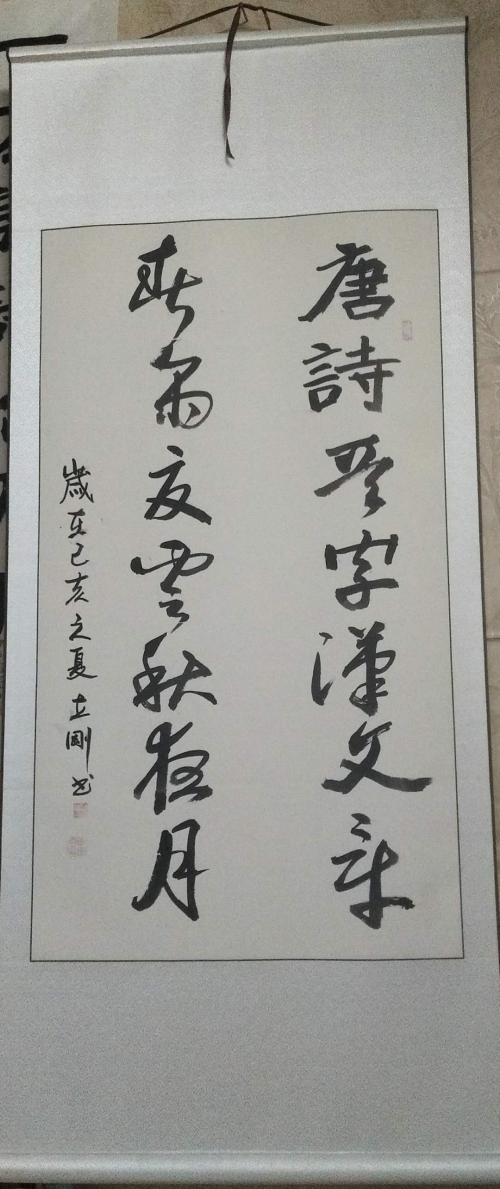 唐詩晉字漢文章
春雨夏雲秋夜月
歲在己亥之夏立剛書